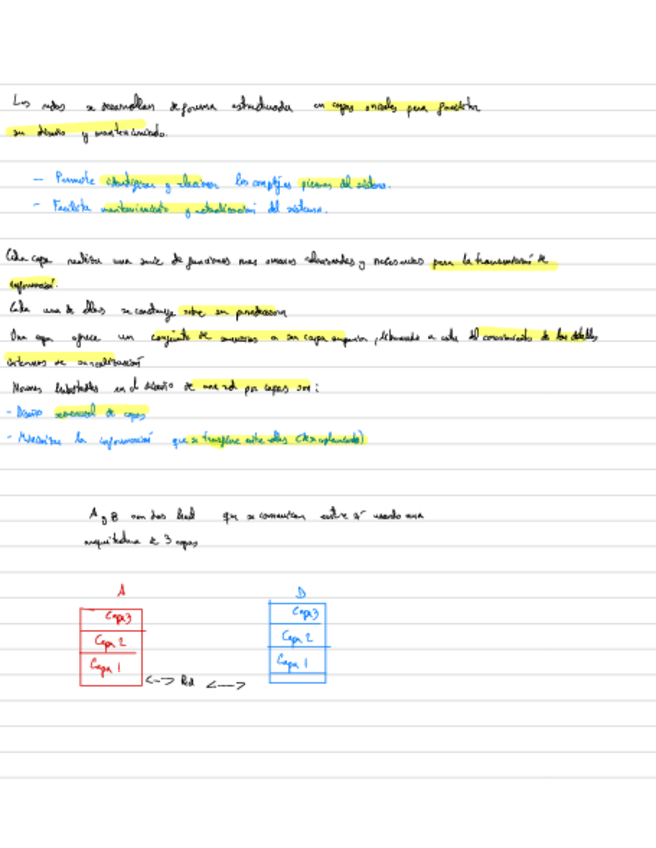 Las redes se desarrollan de forma estructurada en capas para facilitar
su diseño y mantenimiento.
- Permite identificar y relacionar las complejas piezas del sistema.
- Facilita mantenimiento y actualización del sistema.
Cada capa realiza una serie de funciones más o menos relevantes y necesarias para la transmisión de
información.
Cada una de ellas se construye sobre su predecesora
Una capa ofrece un conjunto de servicios a su capa superior, a esta del conocimiento de los detalles
internos de su realización
Normas en el diseño de una red por capas son:
- Diseño de capas
- la información que se transfiere entre ellas
A y B son dos host que se comunican entre sí usando una
arquitectura de 3 capas
A
Capa 3
Capa 2
Capa 1
<-> Red <-->
Capa 3
Capa 2
Capa 1